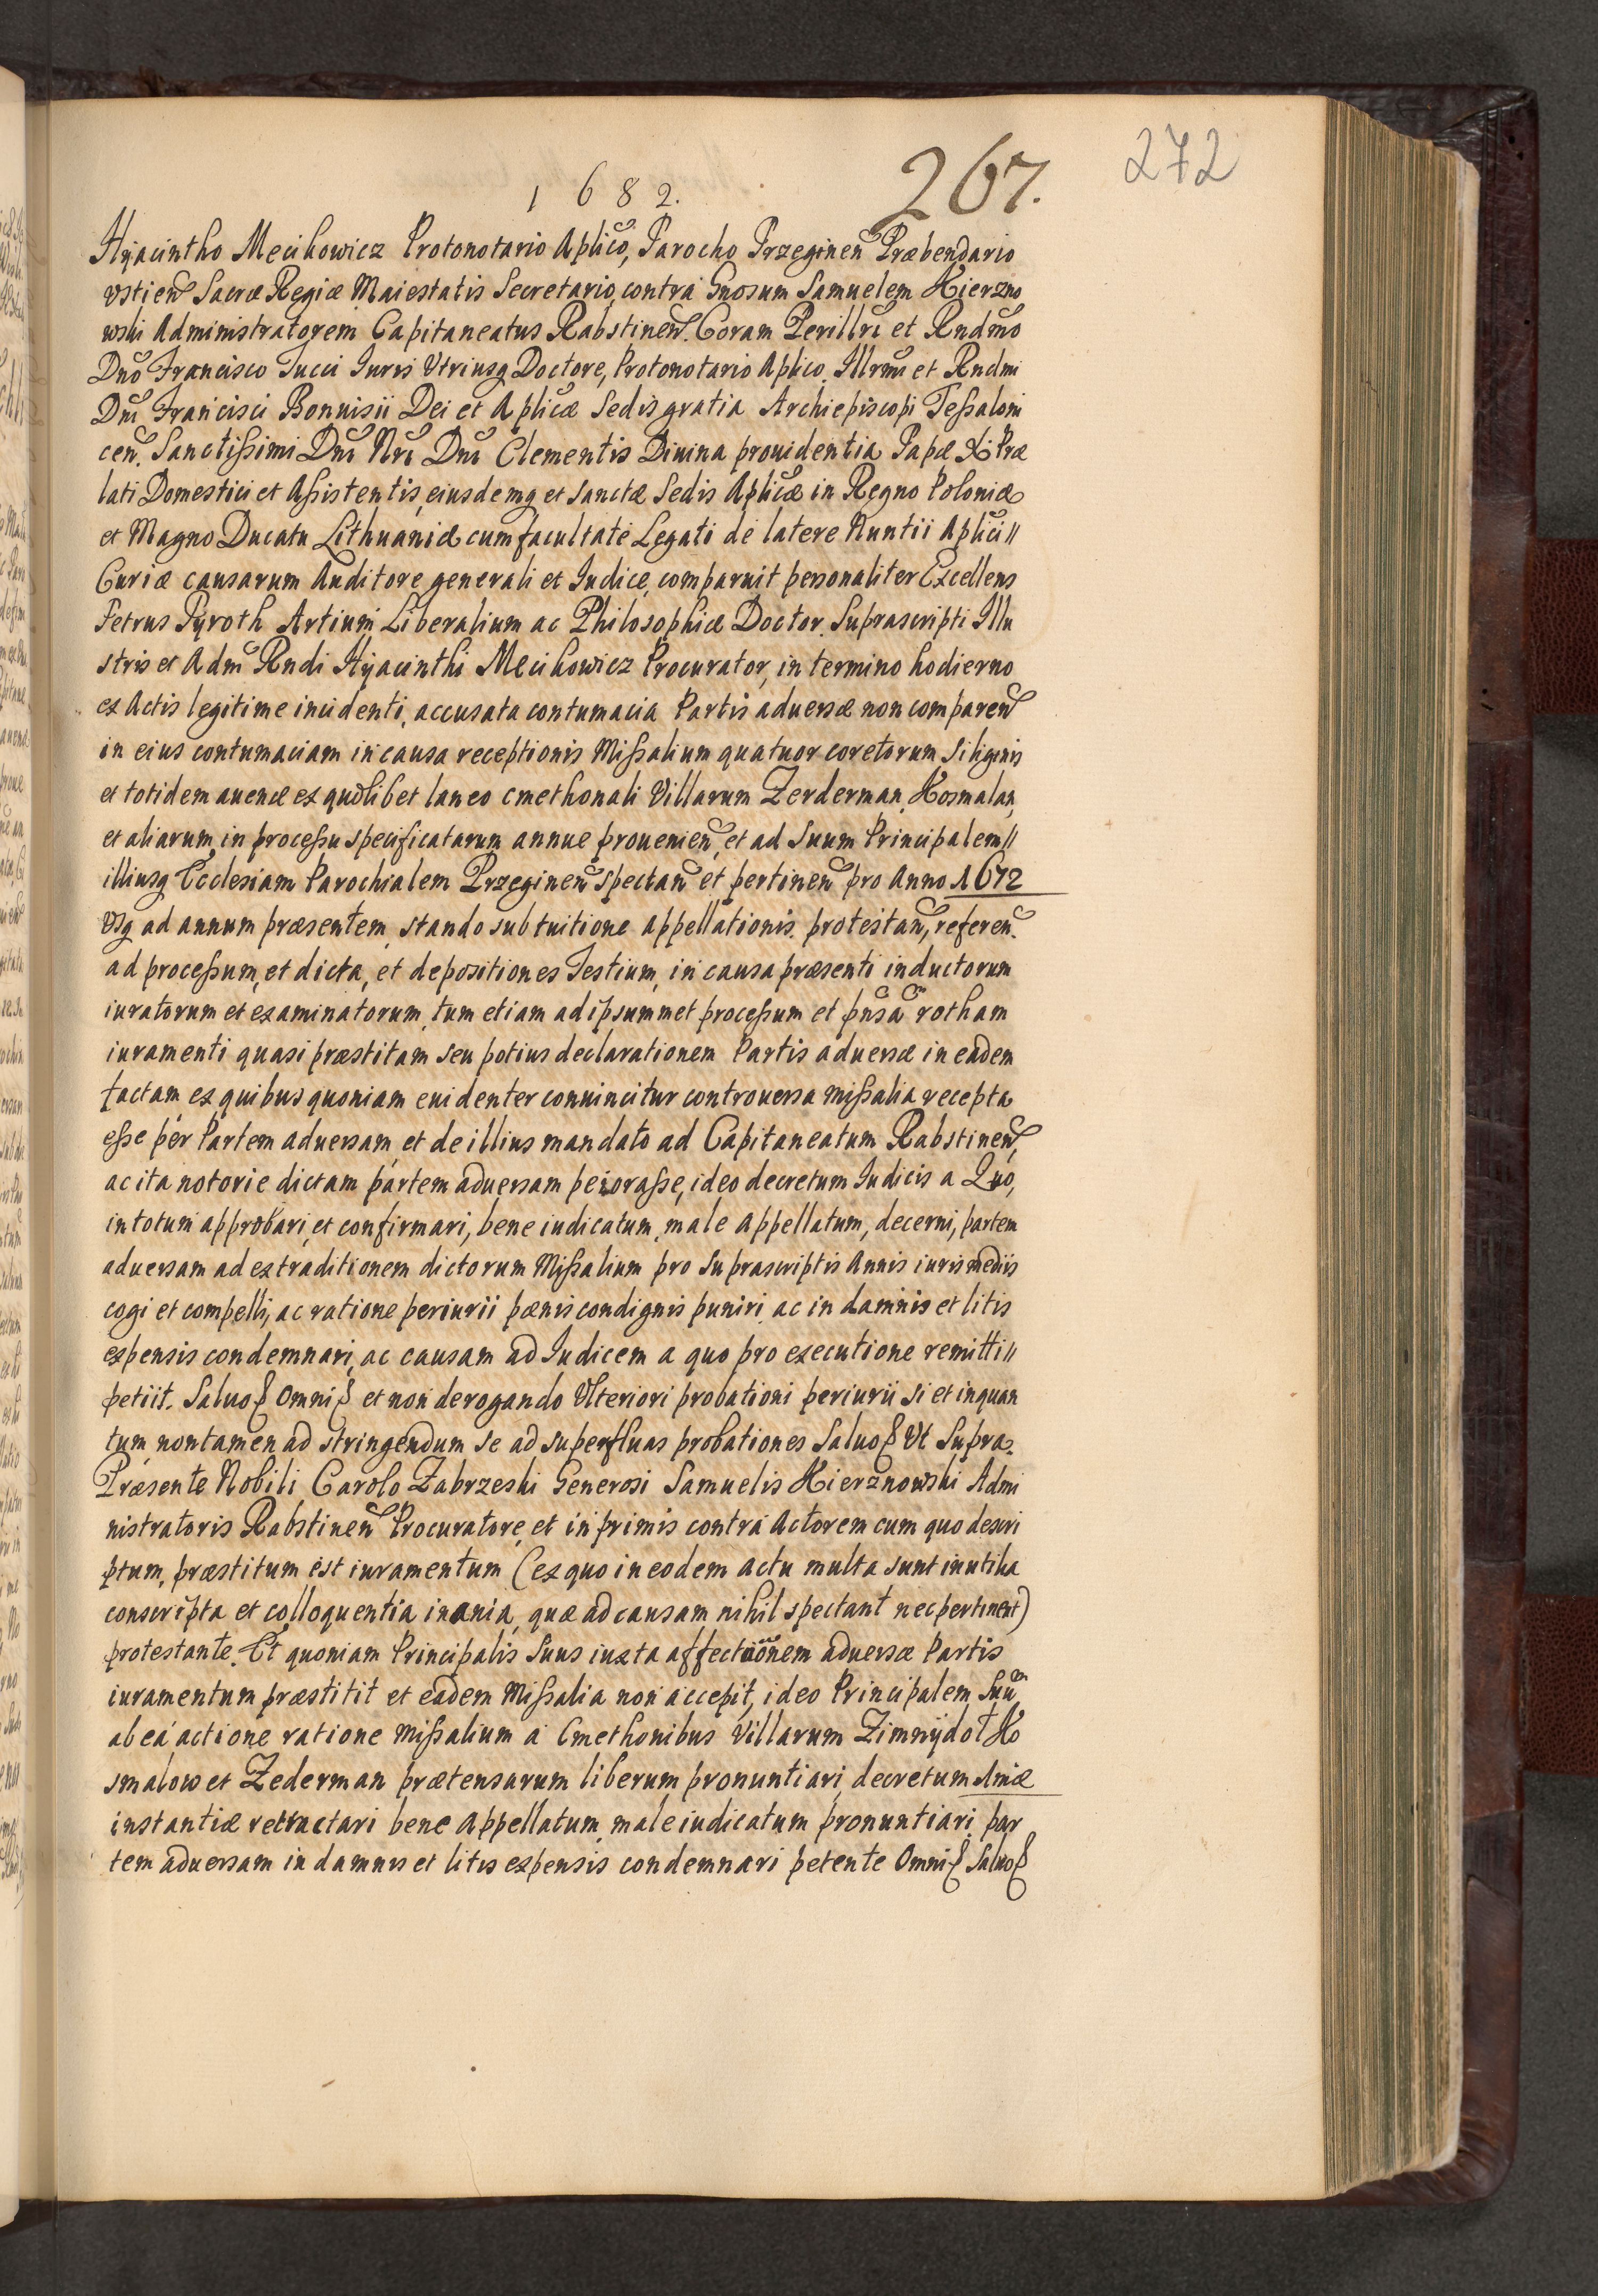 267.
272
1682.
Hyacintho Mecikowicz Protonotario Aplico, Parocho Przeginen Præbendario
Vstien Sacræ Regiæ Maiestatis Secretario, contra Gnosum Samuelem Kierzno
wski Administratorem Capitaneatus Rabstinen. Coram Perillri et Rndmo
Dno Francisco Jucci Iuris Vtriusq Doctore, Protonotario Aplico, Illrmi et Rndmi
Dni Francisci Bonuisii Dei et Aplicæ Sedis gratia Archiepiscopi Teßaloni
cen. Sanctißimi Dni Nri Dni Clementis Diuina prouidentia Papæ X Præ
lati Domestici et Aßistentis, eiusdemq et sanctæ Sedis Aplicæ in Regno Poloniæ
et Magno Ducatu Lithuaniæ cum facultate Legati de latere Nuntii Aplici//
Curiæ causarum Auditore generali et Iudice, comparuit personaliter Excellens
Petrus Pyroth Artium Liberalium ac Philosophiæ Doctor. Suprascripti Illu
stris et Adm Rndi Hyacinthi Mecikowicz Procurator, in termino hodierno
ex Actis legitime incidenti, accusata contumacia Partis aduersæ non comparen
in eius contumaciam in causa receptionis Mißalium quatuor coretorum siliginis
et totidem auenæ ex quolibet laneo cmethonali Villarum Zerderman, Kosmalan,
et aliarum, in proceßu specificatarum annue prouenien, et ad Suum Principalem//
illiusq Ecclesiam Parochialem Przeginen spectan et pertinen pro Anno 1672
Vsq ad annum præsentem, stando sub tuitione appellationis. protestan, referen.
ad proceßum, et dicta, et depositiones Testium, in causa præsenti inductorum
iuratorum et examinatorum, tum etiam ad ipsummet proceßum et pnsa rotham
iuramenti quasi præstitam seu potius declarationem Partis aduersæ in eadem
factam ex quibus quoniam euidenter conuincitur controuersa mißalia recepta
eße per Partem aduersam, et de illius mandato ad Capitaneatum Rabstinen,
ac ita notorie dictam partem aduersam peioraße, ideo decretum Iudicis a Quo,
in totum approbari, et confirmari, bene iudicatum, male appellatum, decerni, partem
aduersam ad extraditionem dictorum Mißalium pro suprascriptis Annis iuris mediis
cogi et compelli, ac ratione periurii pænis condignis puniri, ac in damnis et litis
expensis condemnari, ac causam ad Iudicem a quo pro executione remitti//
petiit. Saluo omni et non derogando Vlteriori probationi periurii si et inquan
tum, non tamen ad stringendum se ad superfluas probationes Saluo Vt Supra.
Præsente Nobili Carolo Zabrzeski Generosi Samuelis Kierznowski Admi
nistratoris Rabstinen Procuratore, et inprimis contra Actorem cum quo descri
ptum, præstitum est iuramentum (ex quo in eodem actu multa sunt inutilia
conscripta et colloquentia inania, quæ ad causam nihil spectant nec pertinent)
protestante. Et quoniam Principalis Suus iuxta affectionem aduersæ Partis
iuramentum præstitit et eadem Mißalia non accepit, ideo Principalem Suu
ab ea actione ratione mißalium a Cmethonibus Villarum Zimnydoł Ko
smalow et Zederman prætensarum liberum pronuntiari, decretum 1mæ
instantiæ retractari bene appellatum, male iudicatum pronuntiari, par
tem aduersam in damnis et litis expensis condemnari petente Omni Saluo